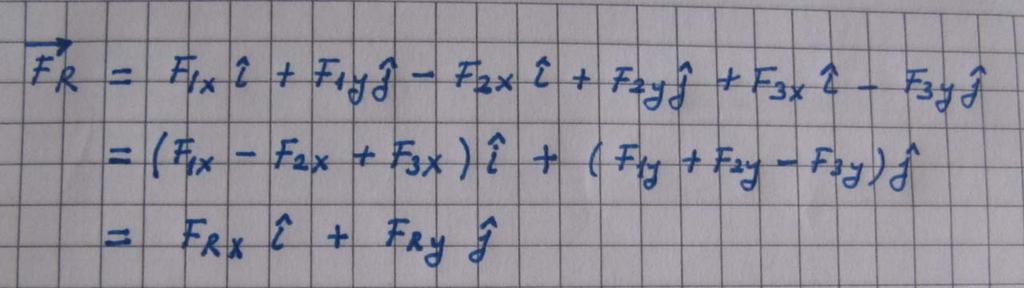 $\overrightarrow{F_R} = F_{1x}\,\hat{i} + F_{1y}\,\hat{j} - F_{2x}\,\hat{i} + F_{2y}\,\hat{j} + F_{3x}\,\hat{i} - F_{3y}\,\hat{j}$
$= (F_{1x} - F_{2x} + F_{3x})\,\hat{i} + (F_{1y} + F_{2y} - F_{3y})\,\hat{j}$
$= F_{Rx}\,\hat{i} + F_{Ry}\,\hat{j}$